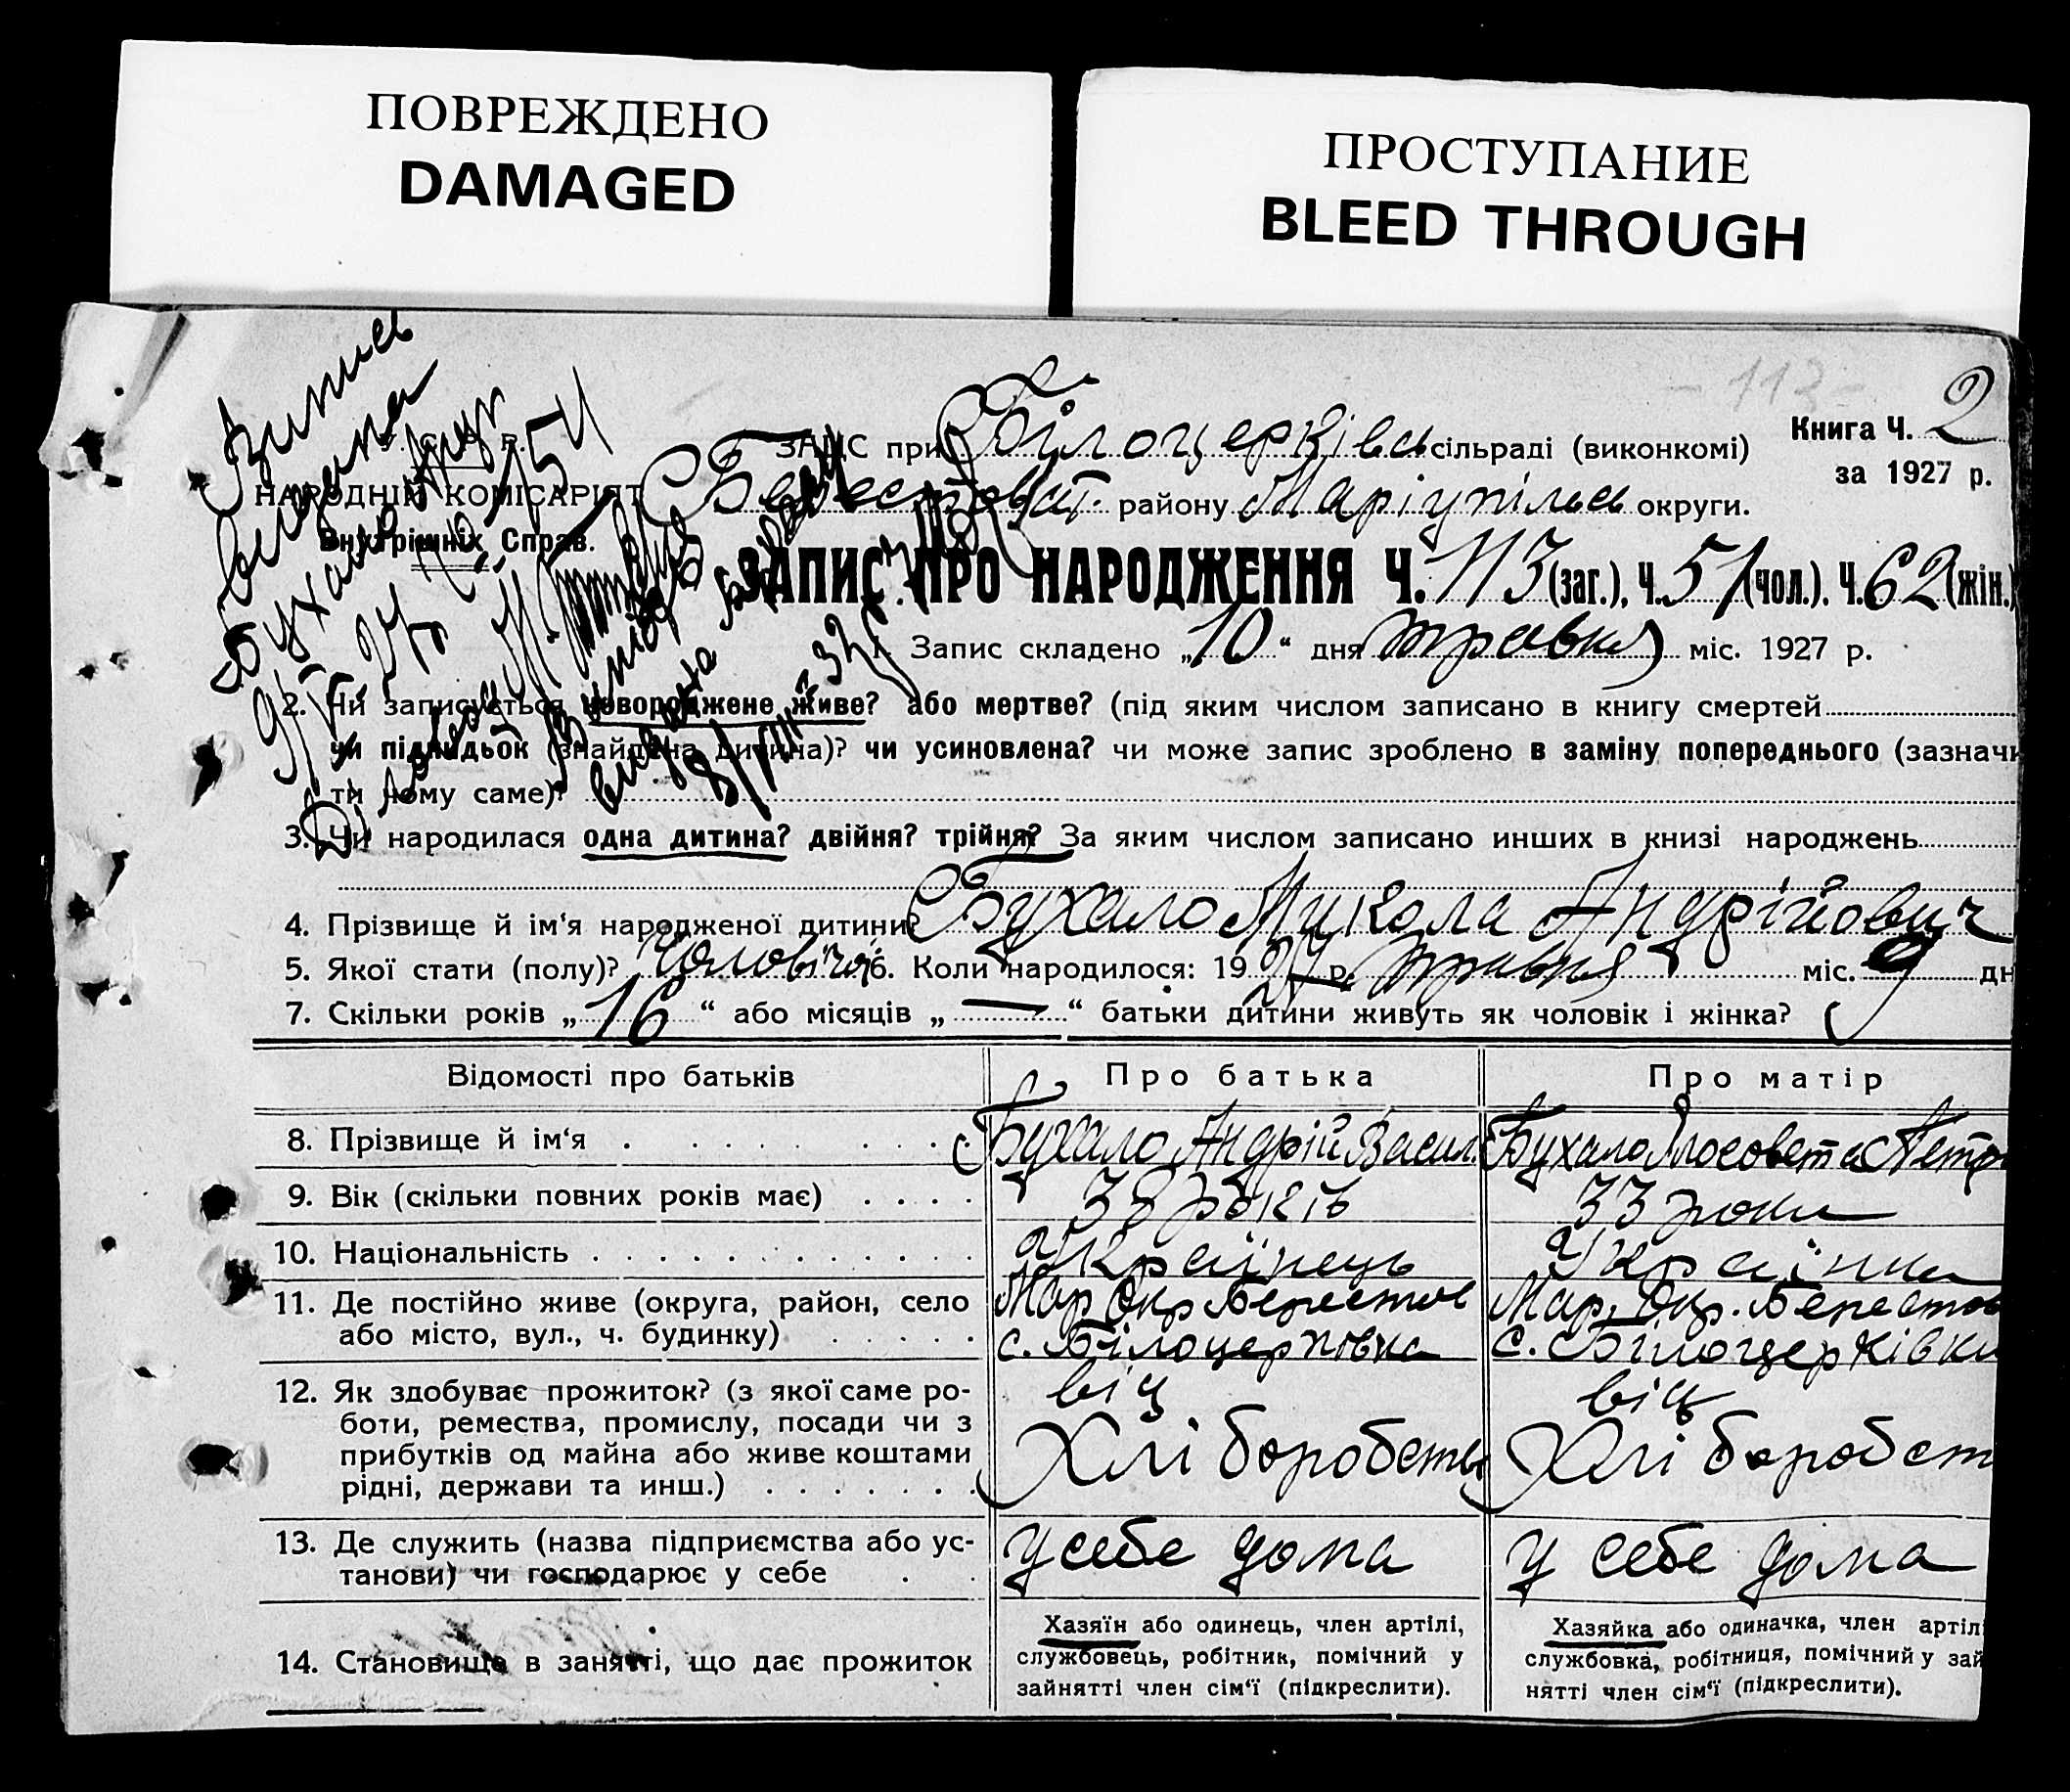 ПОВРЕЖДЕНО
DAMAGED
ПРОСТУПАНИЕ
BLEED THROUGH
113
Книга Ч. 2
за 1927 р.
ЗАГС при Білоцерківсь сільраді (виконкомі)
НАРОДНІЙ КОМІСАРІЯТ
Внутрішніх Справ.
Берестоват. району Маріупільсь округи.
ЗАПИС ПРО НАРОДЖЕННЯ Ч. 113 (заг.), Ч. 51 (чол.). Ч. 62 (жін.)
1. Запис складено „10“ дня травня міс. 1927 р.
2. Чи записується новороджене живе? або мертве? (під яким числом записано в книгу смертей
чи підкидьок (знайдена дитина)? чи усиновлена? чи може запис зроблено в заміну попереднього (зазначи
ти чому саме)?
3. Чи народилася одна дитина? двійня? трійня? За яким числом записано инших в книзі народжень
4. Прізвище й ім‘я народженої дитини? Бухало Микола Андрійович
5. Якої стати (полу)? Чоловічої 6. Коли народилося: 1927 р. травня міс. 9 дн
7. Скільки років „16“ або місяців „—“ батьки дитини живуть як чоловік і жінка?
Відомості про батьків Про батька Про матір
8. Прізвище й ім‘я Бухало Андрій Васил Бухало Петр
9. Вік (скільки повних років має) 38 років 33 роки
10. Національність Українець Українка
11. Де постійно живе (округа, район, село Мар Окр Берестов Мар. Окр. Берестов
або місто, вул., ч. будинку) с. Білоцерковка с. Білоцерківка
12. Як здобуває прожиток? (з якої саме ро-
боти, ремества, промислу, посади чи з
прибутків од майна або живе коштами Хліборобств Хліборобст
рідні, держави та инш.)
13. Де служить (назва підприємства або ус- у себе дома у себе дома
танови) чи господарює у себе
14. Становище в занятті, що дає прожиток
Хазяїн або одинець, член артілі,
службовець, робітник, помічний у
зайнятті член сім‘ї (підкреслити).
Хазяйка або одиначка, член артіл
службовка, робітниця, помічний у зай
нятті член сім‘ї (підкреслити).